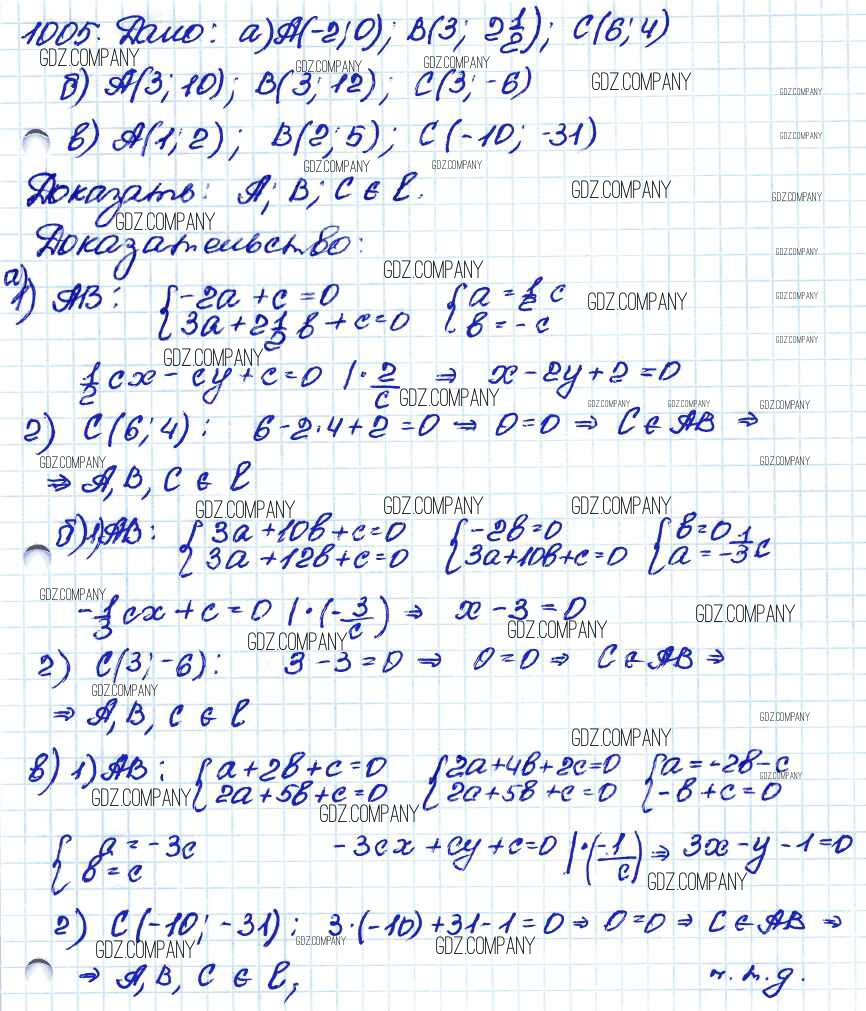 1005. Дано: а) A(-2; 0); B(3; 2 1/2); C(6; 4)
GDZ.COMPANY GDZ.COMPANY GDZ.COMPANY
б) A(3; 10); B(3; 12); C(3; -6) GDZ.COMPANY GDZ.COMPANY
в) A(1; 2); B(2; 5); C(-10; -31) GDZ.COMPANY
GDZ.COMPANY GDZ.COMPANY
Доказать: A; B; C ∈ l. GDZ.COMPANY GDZ.COMPANY
GDZ.COMPANY
Доказательство: GDZ.COMPANY
GDZ.COMPANY
а) 1) AB: { -2a + c = 0 { a = 1/2 c GDZ.COMPANY GDZ.COMPANY
3a + 2 1/2 b + c = 0 b = -c
GDZ.COMPANY GDZ.COMPANY
1/2 cx - cy + c = 0 | · 2/c ⇒ x - 2y + 2 = 0
GDZ.COMPANY GDZ.COMPANY GDZ.COMPANY GDZ.COMPANY
2) C(6; 4): 6 - 2·4 + 2 = 0 ⇒ 0 = 0 ⇒ C ∈ AB ⇒
GDZ.COMPANY GDZ.COMPANY
⇒ A, B, C ∈ l
GDZ.COMPANY GDZ.COMPANY GDZ.COMPANY
б) 1) AB: { 3a + 10b + c = 0 { -2b = 0 { b = 0
3a + 12b + c = 0 3a + 10b + c = 0 a = -1/3 c
GDZ.COMPANY
-1/3 cx + c = 0 | · (-3/c) ⇒ x - 3 = 0 GDZ.COMPANY
GDZ.COMPANY GDZ.COMPANY
2) C(3; -6): 3 - 3 = 0 ⇒ 0 = 0 ⇒ C ∈ AB ⇒
GDZ.COMPANY
⇒ A, B, C ∈ l GDZ.COMPANY
GDZ.COMPANY
в) 1) AB: { a + 2b + c = 0 { 2a + 4b + 2c = 0 { a = -2b - c
GDZ.COMPANY
2a + 5b + c = 0 2a + 5b + c = 0 -b + c = 0
GDZ.COMPANY GDZ.COMPANY
{ a = -3c -3cx + cy + c = 0 | · (-1/c) ⇒ 3x - y - 1 = 0
b = c
GDZ.COMPANY
2) C(-10; -31): 3·(-10) + 31 - 1 = 0 ⇒ 0 = 0 ⇒ C ∈ AB ⇒
GDZ.COMPANY GDZ.COMPANY GDZ.COMPANY
⇒ A, B, C ∈ l, ч.т.д.